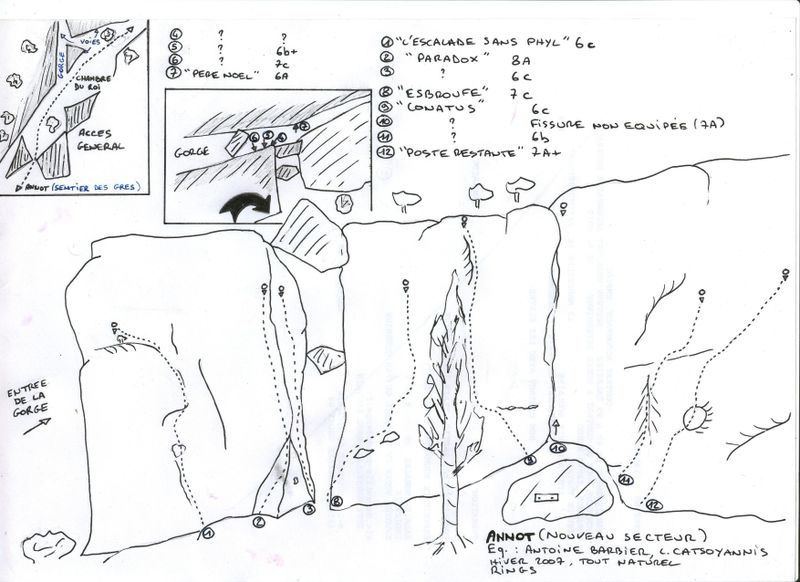 VOIES
?
GORGE
CHAMBRE
DU ROI
ACCES
GENERAL
D'ANNOT (SENTIER DES GRES)
④ ? ?
⑤ ? 6b+
⑥ ? 7c
⑦ "PERE NOEL" 6A
GORGE
① "L'ESCALADE SANS PHYL" 6c
② "PARADOX" 8A
③ ? 6c
⑧ "ESBROUFE" 7c
⑨ "CONATUS" 6c
⑩ ? FISSURE NON EQUIPÉE (7A)
⑪ ? 6b
⑫ "POSTE RESTANTE" 7A+
ENTREE
DE LA
GORGE
① ② ③ ⑧ ⑨ ⑩ ⑪ ⑫
ANNOT (NOUVEAU SECTEUR)
Eq. : ANTOINE BARBIER, L. CATSOYANNIS
HIVER 2007, TOUT NATUREL
RINGS